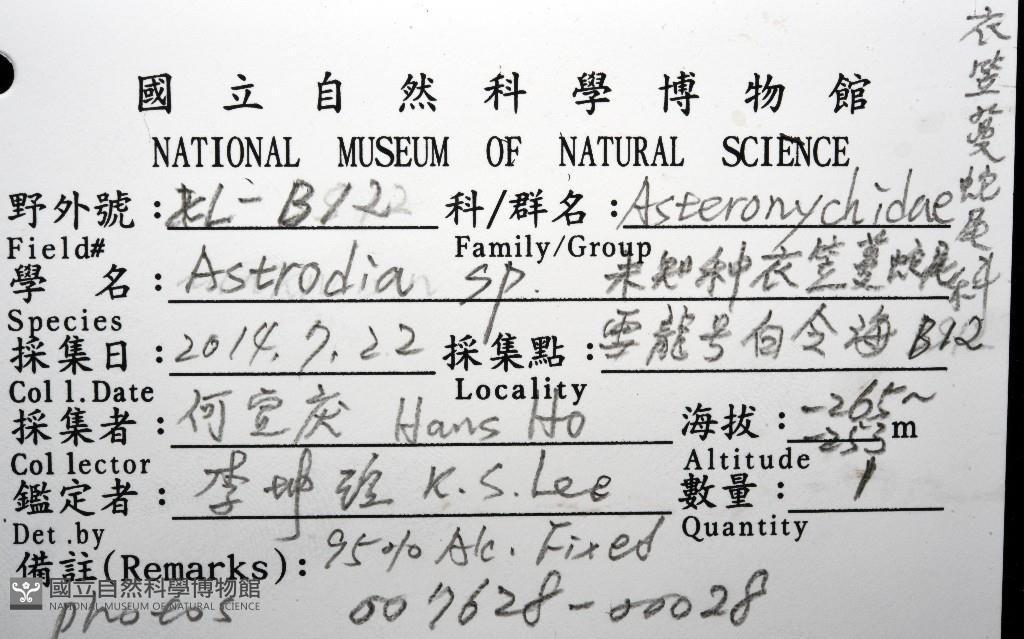 國立自然科學博物館
NATIONAL MUSEUM OF NATURAL SCIENCE
野外號: XL-B92 科/群名: Asteronychidae
Field# Family/Group
學 名: Astrodia sp. 未知种衣笠蔓蛇尾
Species
採集日: 2014.7.22 採集點: 雲龍号白令海 B92
Coll.Date Locality
採集者: 何宣庆 Hans Ho 海拔: -265~-253 m
Collector Altitude
鑑定者: 李坤瑄 K.S.Lee 數量: 1
Det.by Quantity
備註(Remarks): 95% Alc. Fixed
photos 007628-00028
衣笠蔓蛇尾科
國立自然科學博物館
NATIONAL MUSEUM OF NATURAL SCIENCE